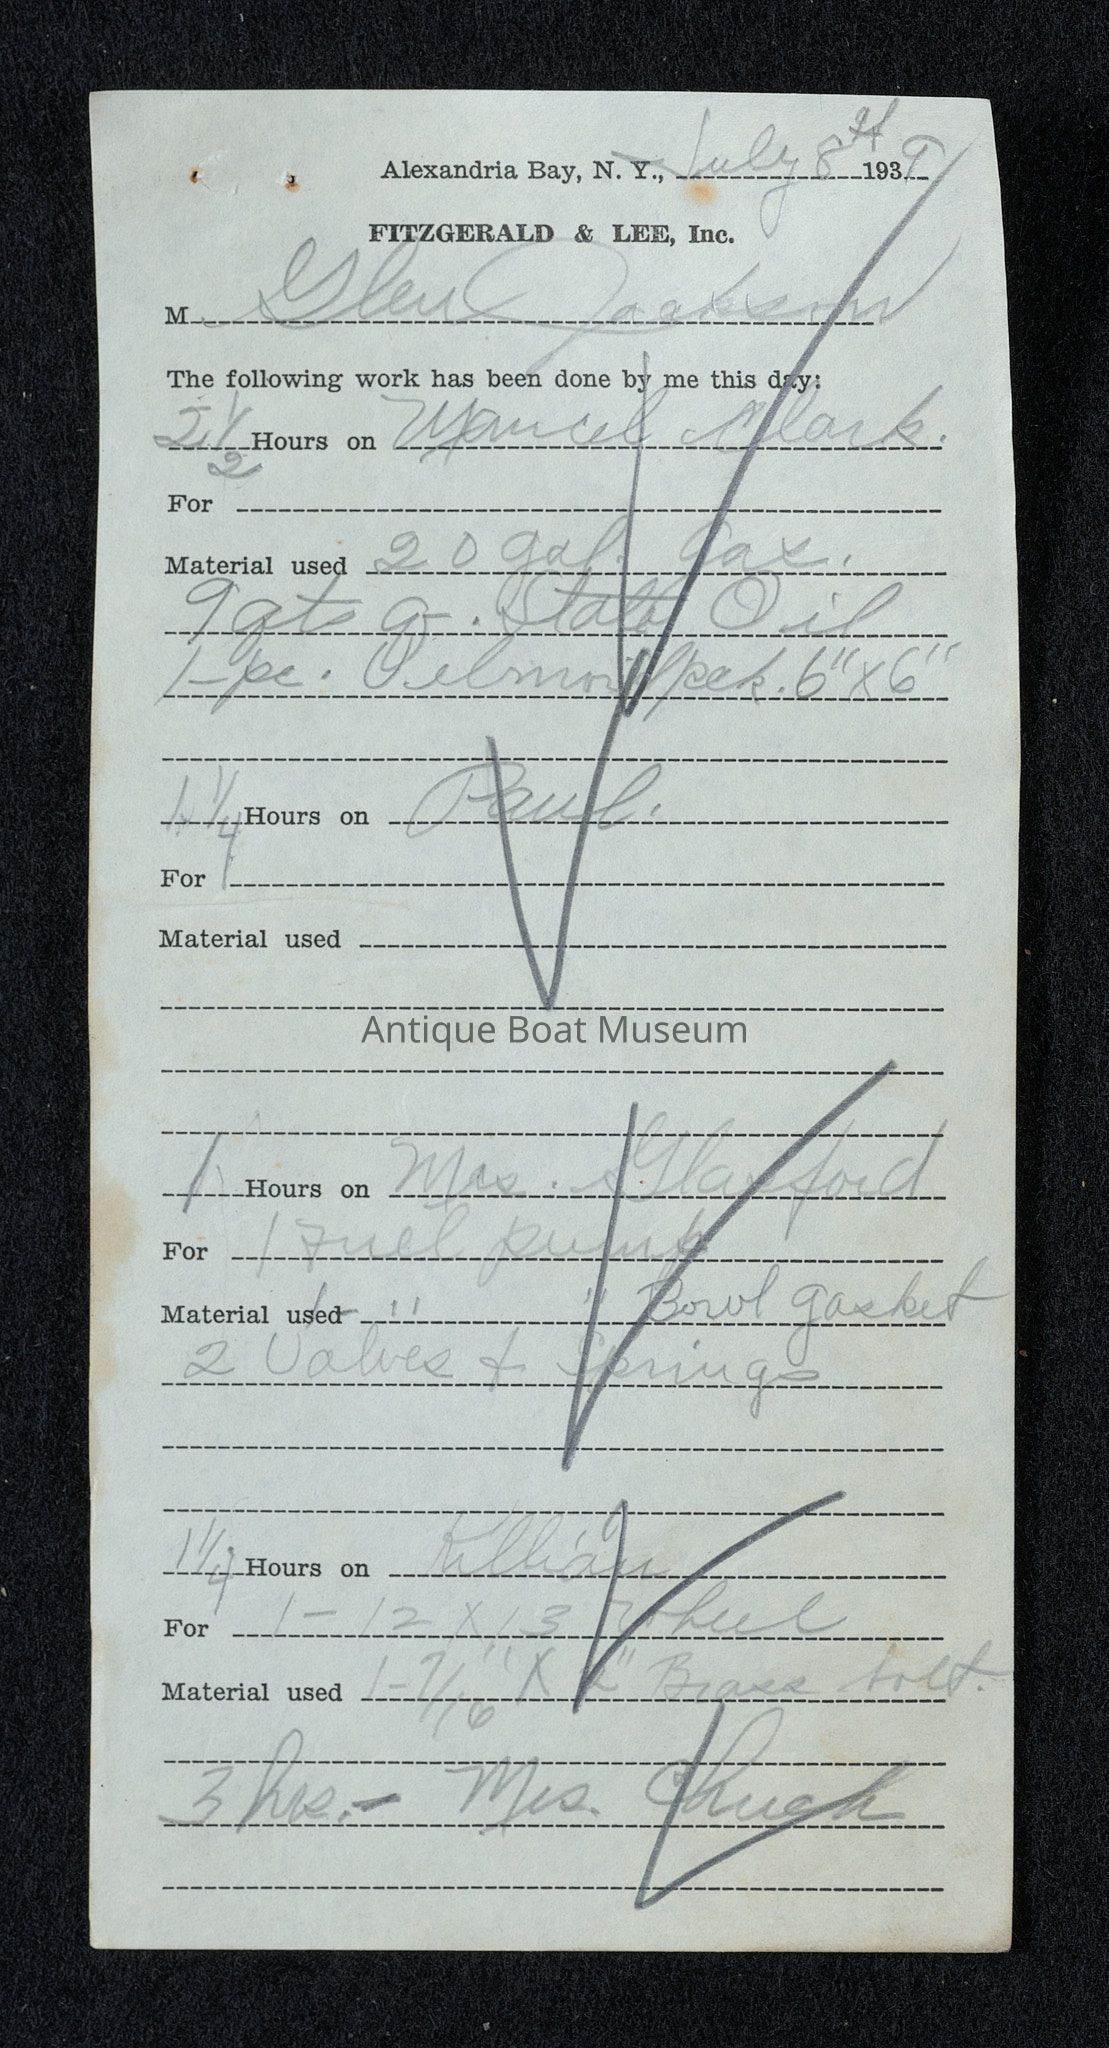 Alexandria Bay, N. Y., July 8th 1939
FITZGERALD & LEE, Inc.
M Glen Jackson
The following work has been done by me this day:
2 1/2 Hours on Marcel Clark.
For
Material used 20 gal. Gas.
9 qts Q. State Oil
1-pc. pck. 6" x 6"
1 1/4 Hours on Paul.
For
Material used
Antique Boat Museum
1 Hours on Mrs. Glasford
For 1 Fuel pump
Material used 1- " " Bowl gasket
2 Valves & Springs
1 1/4 Hours on Killian
For 1- 12 x 13 Wheel
Material used 1-7/16" X 2" Brass bolt.
3 hrs.- Mrs. Chuck